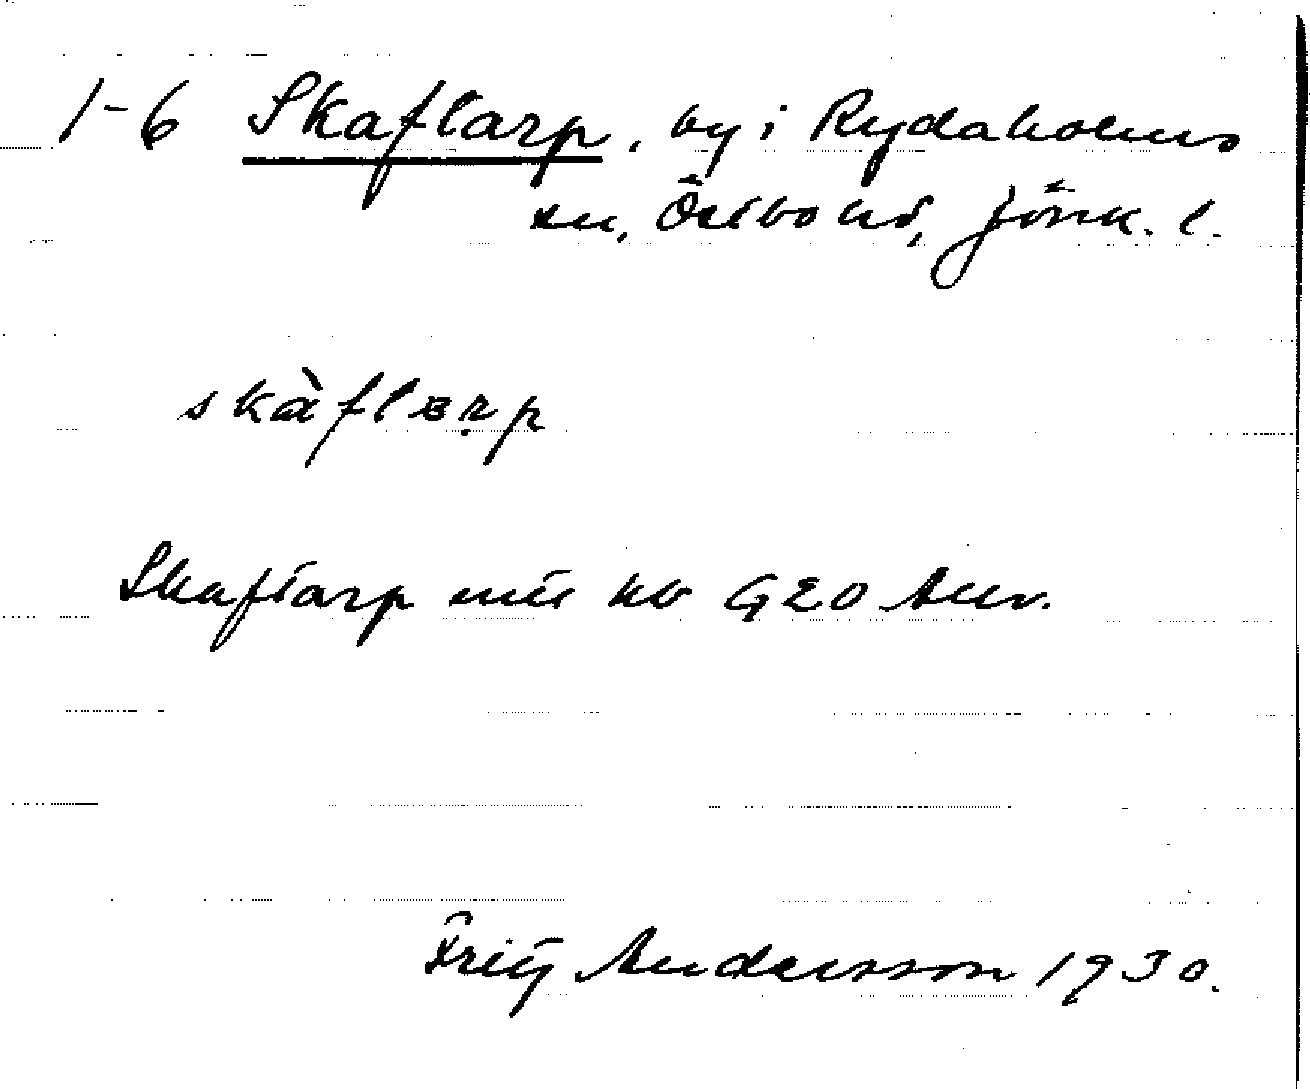 1-6 Skaftarp, by i Rydaholms
sn, Östbo hd, Jönk. l.
skàftɐrp
Skaftarp mtl kb G20 Anv.
Fritz Andersson 1930.